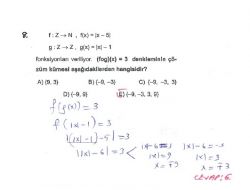 8. f : Z → N , f(x) = |x – 5|
g : Z → Z , g(x) = |x| – 1
fonksiyonları veriliyor. (fog)(x) = 3 denkleminin çö-
züm kümesi aşağıdakilerden hangisidir?
A) {9, 3} B) {–9, –3} C) {–9, –3, 3}
D) {–9, 9} E) {–9, –3, 3, 9}
f(g(x)) = 3
f(|x|-1) = 3
|(|x|-1)-5| = 3
||x|-6| = 3 <
|x|-6=3 |x|-6=-3
|x|=9 |x|=3
x=∓9 x=∓3
CEVAP: E